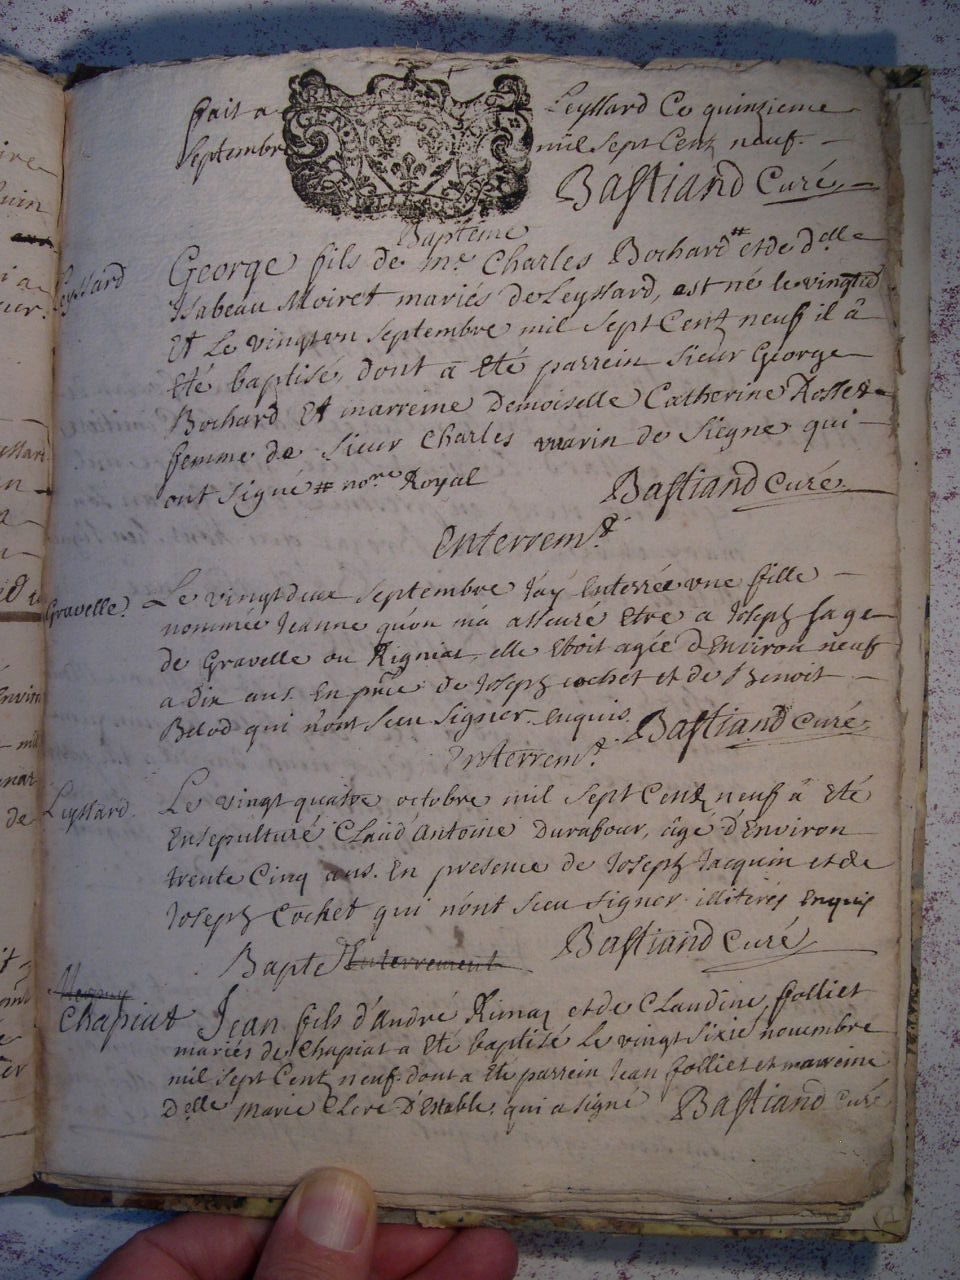 fait a Leyssard Ce quinzieme
Septembre mil sept Cent neuf.
Bastiand Curé
Baptéme
Leyssard
George fils de me. Charles Bochard # et de Delle
Isabeau Moiret mariés de Leyssard, est né le vingtie
Et Le vingt un Septembre mil sept Cent neuf il â
Eté baptisé, dont â Eté parrein Sieur George
Bochard Et marreine Demoiselle Catherine Rosset
femme de Sieur Charles marin de Siegne qui
ont signé # nore Royal
Bastiand Curé
Enterremt.
Gravelle
Le vingt deux septembre J'ay Enterrée une fille
nommée Jeanne qu'on m'a asseuré Etre a Joseph sage
de Gravelle ou Rigniat, elle Etoit agée d'Environ neuf
a dix ans. En pnce de Joseph cochet et de Benoit
Belod qui n'ont sceu signer Enquis. Bastiand Curé
Enterremt.
Leyssard.
Le vingt quatre octobre mil sept Cent neuf â Eté
Ensepulturé Claud'Antoine Durafour, âgé d'Environ
trente Cinq ans. En presence de Joseph Jacquin et de
Joseph Cochet qui n'ont sceu signer illiterés Enquis
Bastiand Curé
Bapte Enterrement
Chapiat
Jean fils d'André Rimaz et de Claudine folliet
mariés de Chapiat a Eté baptisé Le vingt sixie novembre
mil sept Cent neuf dont a Eté parrein Jean folliet et marreine
Delle marie Clere D'Estable qui a signé Bastiand Curé